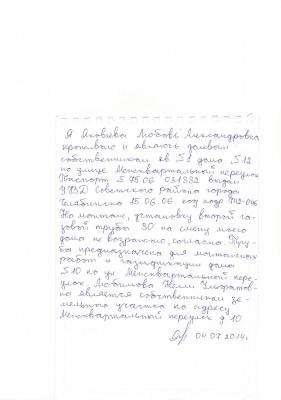 Я Яковлева Любовь Александровна
проживаю и являюсь долевым
собственником кв 51 дома 512
по улице Межквартальный переулок
Паспорт 5 75 06 031882 выдан
УВД Советского района города
Челябинска 15.06.06. код подр 742-046
На монтаж, установку второй га-
зовой трубы 30 на стену моего
дома не возражаю, согласна. Тру-
ба предназначена для монтажных
работ и газификации дома
510 по ул. Межквартальный пере-
улок. Любимова Нелли Ульфатов-
на является собственником зе-
мельного участка по адресу
Межквартальный переулок д 10
04.07.2014г.